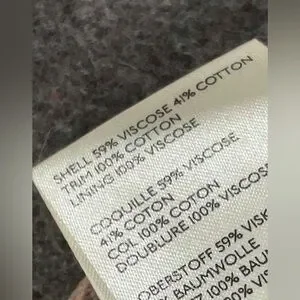 SHELL 59% VISCOSE 41% COTTON
TRIM 100% COTTON
LINING 100% VISCOSE
COQUILLE 59% VISCOSE
41% COTON
COL 100% COTON
DOUBLURE 100% VISCOSE
OBERSTOFF 59% VISK
% BAUMWOLLE
100% BAUM
100%